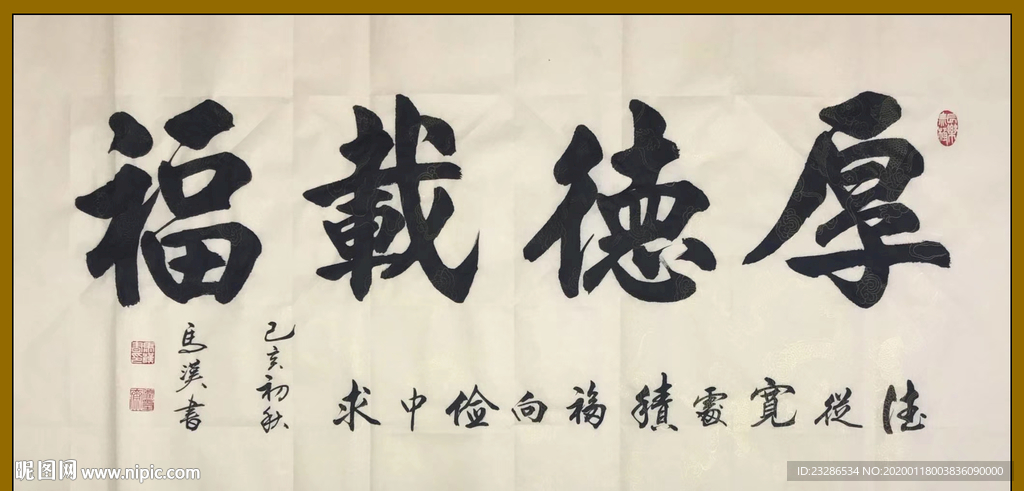 厚德載福
德從寬處積福向儉中求
己亥初秋
馬漢書
昵图网 www.nipic.com
ID:23286534 NO:20200118003836090000